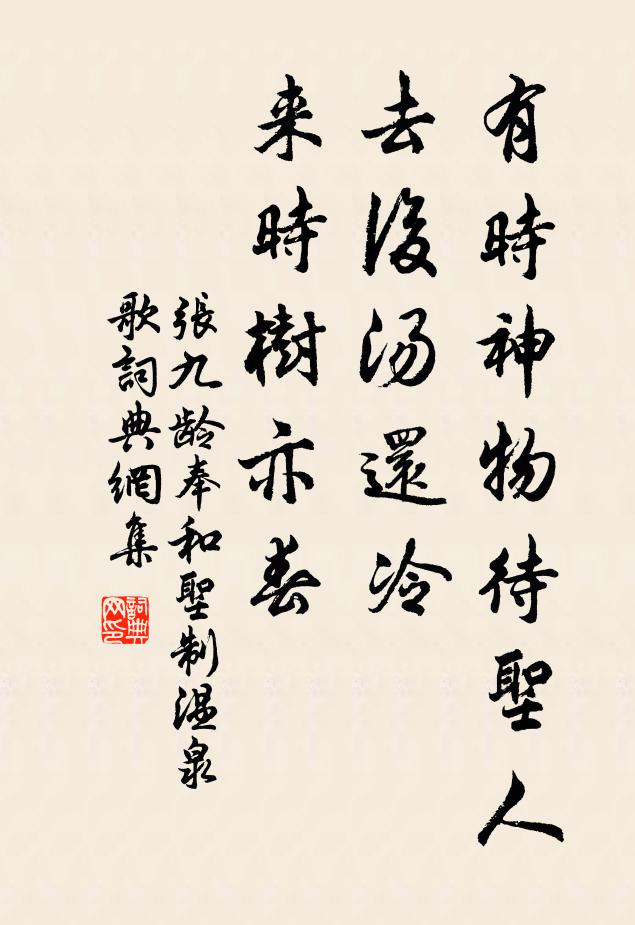 有時神物待聖人
去後湯還冷
来時樹亦春
張九齡奉和聖制温泉
歌詞典網集
詞典
网印